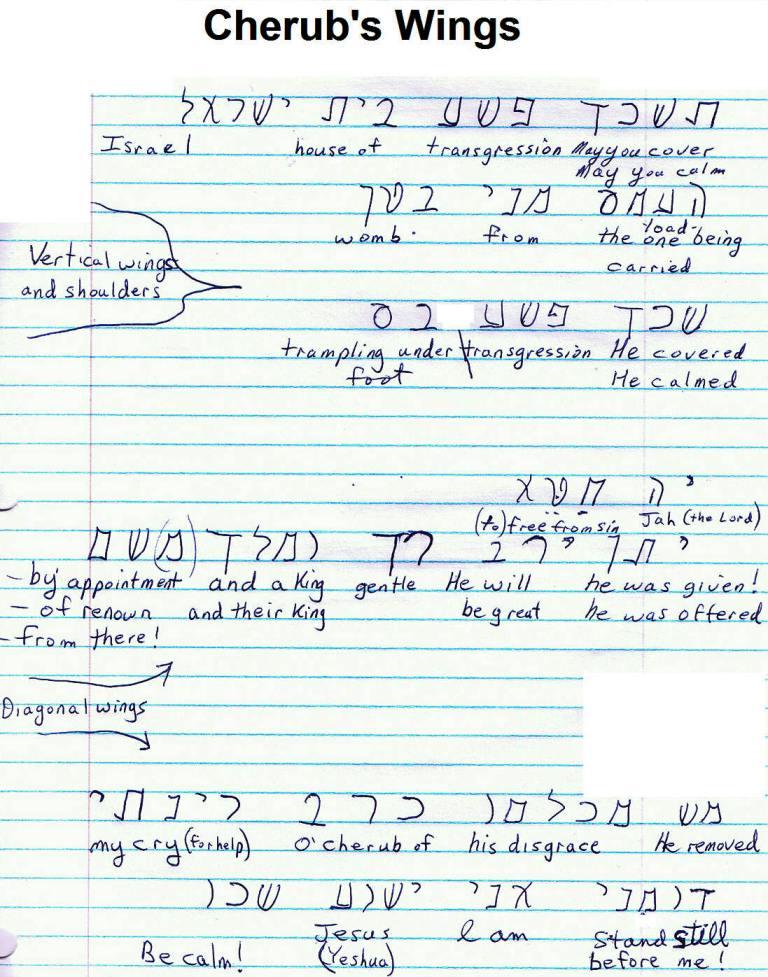 Cherub's Wings
תשכך פשע בית ישראל
Israel house of transgression May you cover
May you calm
העמס מני בטן
womb from the load-one being
carried
Vertical wings
and shoulders
שכך פשע בס
trampling under transgression He covered
foot He calmed
יה חטא
(to) free from sin Jah (the Lord)
יתן ירב רך ומלך (מ)שם
- by appointment and a King gentle He will he was given!
- of renown and their King be great he was offered
- from there!
Diagonal wings
מש מכלמו כרב רינתי
my cry (for help) O' cherub of his disgrace He removed
דומני אני ישוע שכו
Be calm! Jesus (Yeshua) I am Stand still before me!